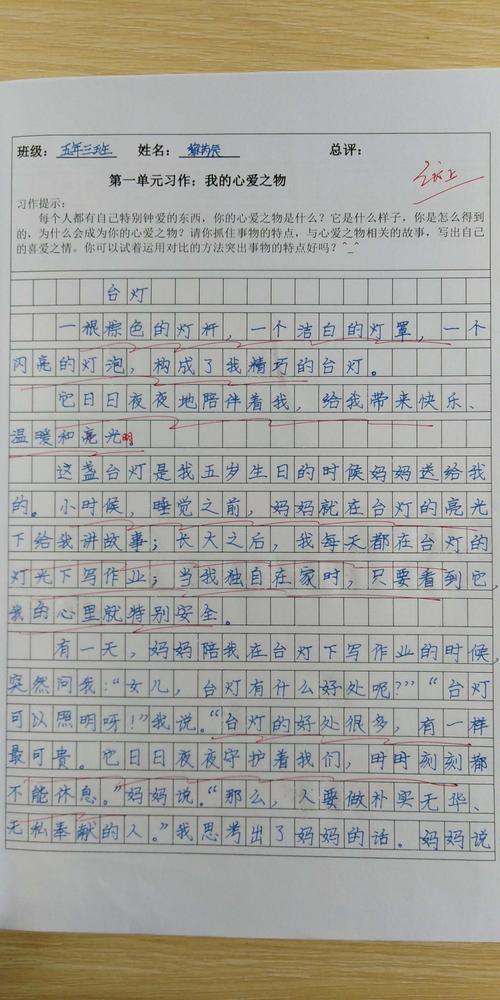 班级：五年三班 姓名： 总评：
第一单元习作：我的心爱之物
习作提示：
每个人都有自己特别钟爱的东西，你的心爱之物是什么？它是什么样子，你是怎么得到
的，为什么会成为你的心爱之物？请你抓住事物的特点，与心爱之物相关的故事，写出自己
的喜爱之情。你可以试着运用对比的方法突出事物的特点好吗？^_^
台灯
一根棕色的灯杆，一个洁白的灯罩，一个
闪亮的灯泡，构成了我精巧的台灯。
它日日夜夜地陪伴着我，给我带来快乐、
温暖和亮光明
这盏台灯是我五岁生日的时候妈妈送给我
的。小时候，睡觉之前，妈妈就在台灯的亮光
下给我讲故事；长大之后，我每天都在台灯的
灯光下写作业；当我独自在家时，只要看到它，
我的心里就特别安全。
有一天，妈妈陪我在台灯下写作业的时候，
突然问我：“女儿，台灯有什么好处呢？”“台灯
可以照明呀！”我说。“台灯的好处很多，有一样
最可贵。它日日夜夜守护着我们，时时刻刻都
不能休息。”妈妈说。“那么，人要做朴实无华、
无私奉献的人。”我思考出了妈妈的话。妈妈说